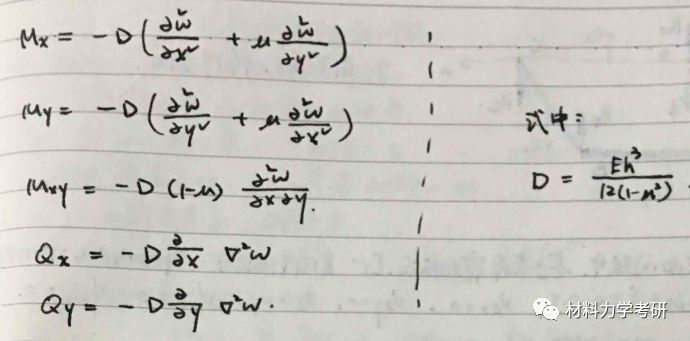 Mx = -D(∂²w/∂x² + μ ∂²w/∂y²)
My = -D(∂²w/∂y² + μ ∂²w/∂x²)
Mxy = -D(1-μ) ∂²w/∂x∂y.
Qx = -D ∂/∂x ∇²w
Qy = -D ∂/∂y ∇²w.
式中:
D = Eh³/12(1-μ²).
材料力学考研